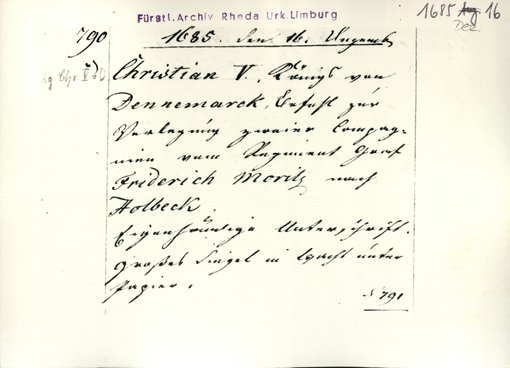 Fürstl. Archiv Rheda Urk. Limburg
1685 Aug 16
Dez.
790
1685. den 16. Augusti
Christian V., Königs von
Dennemarck, Befehl zur
Verlegung zweier Compag-
nien vom Regiment Graf
Friderich Moritz nach
Holbeck.
Eigenhändige Unterschrift.
Großes Siegel in Wachs unter
Papier.
N 791